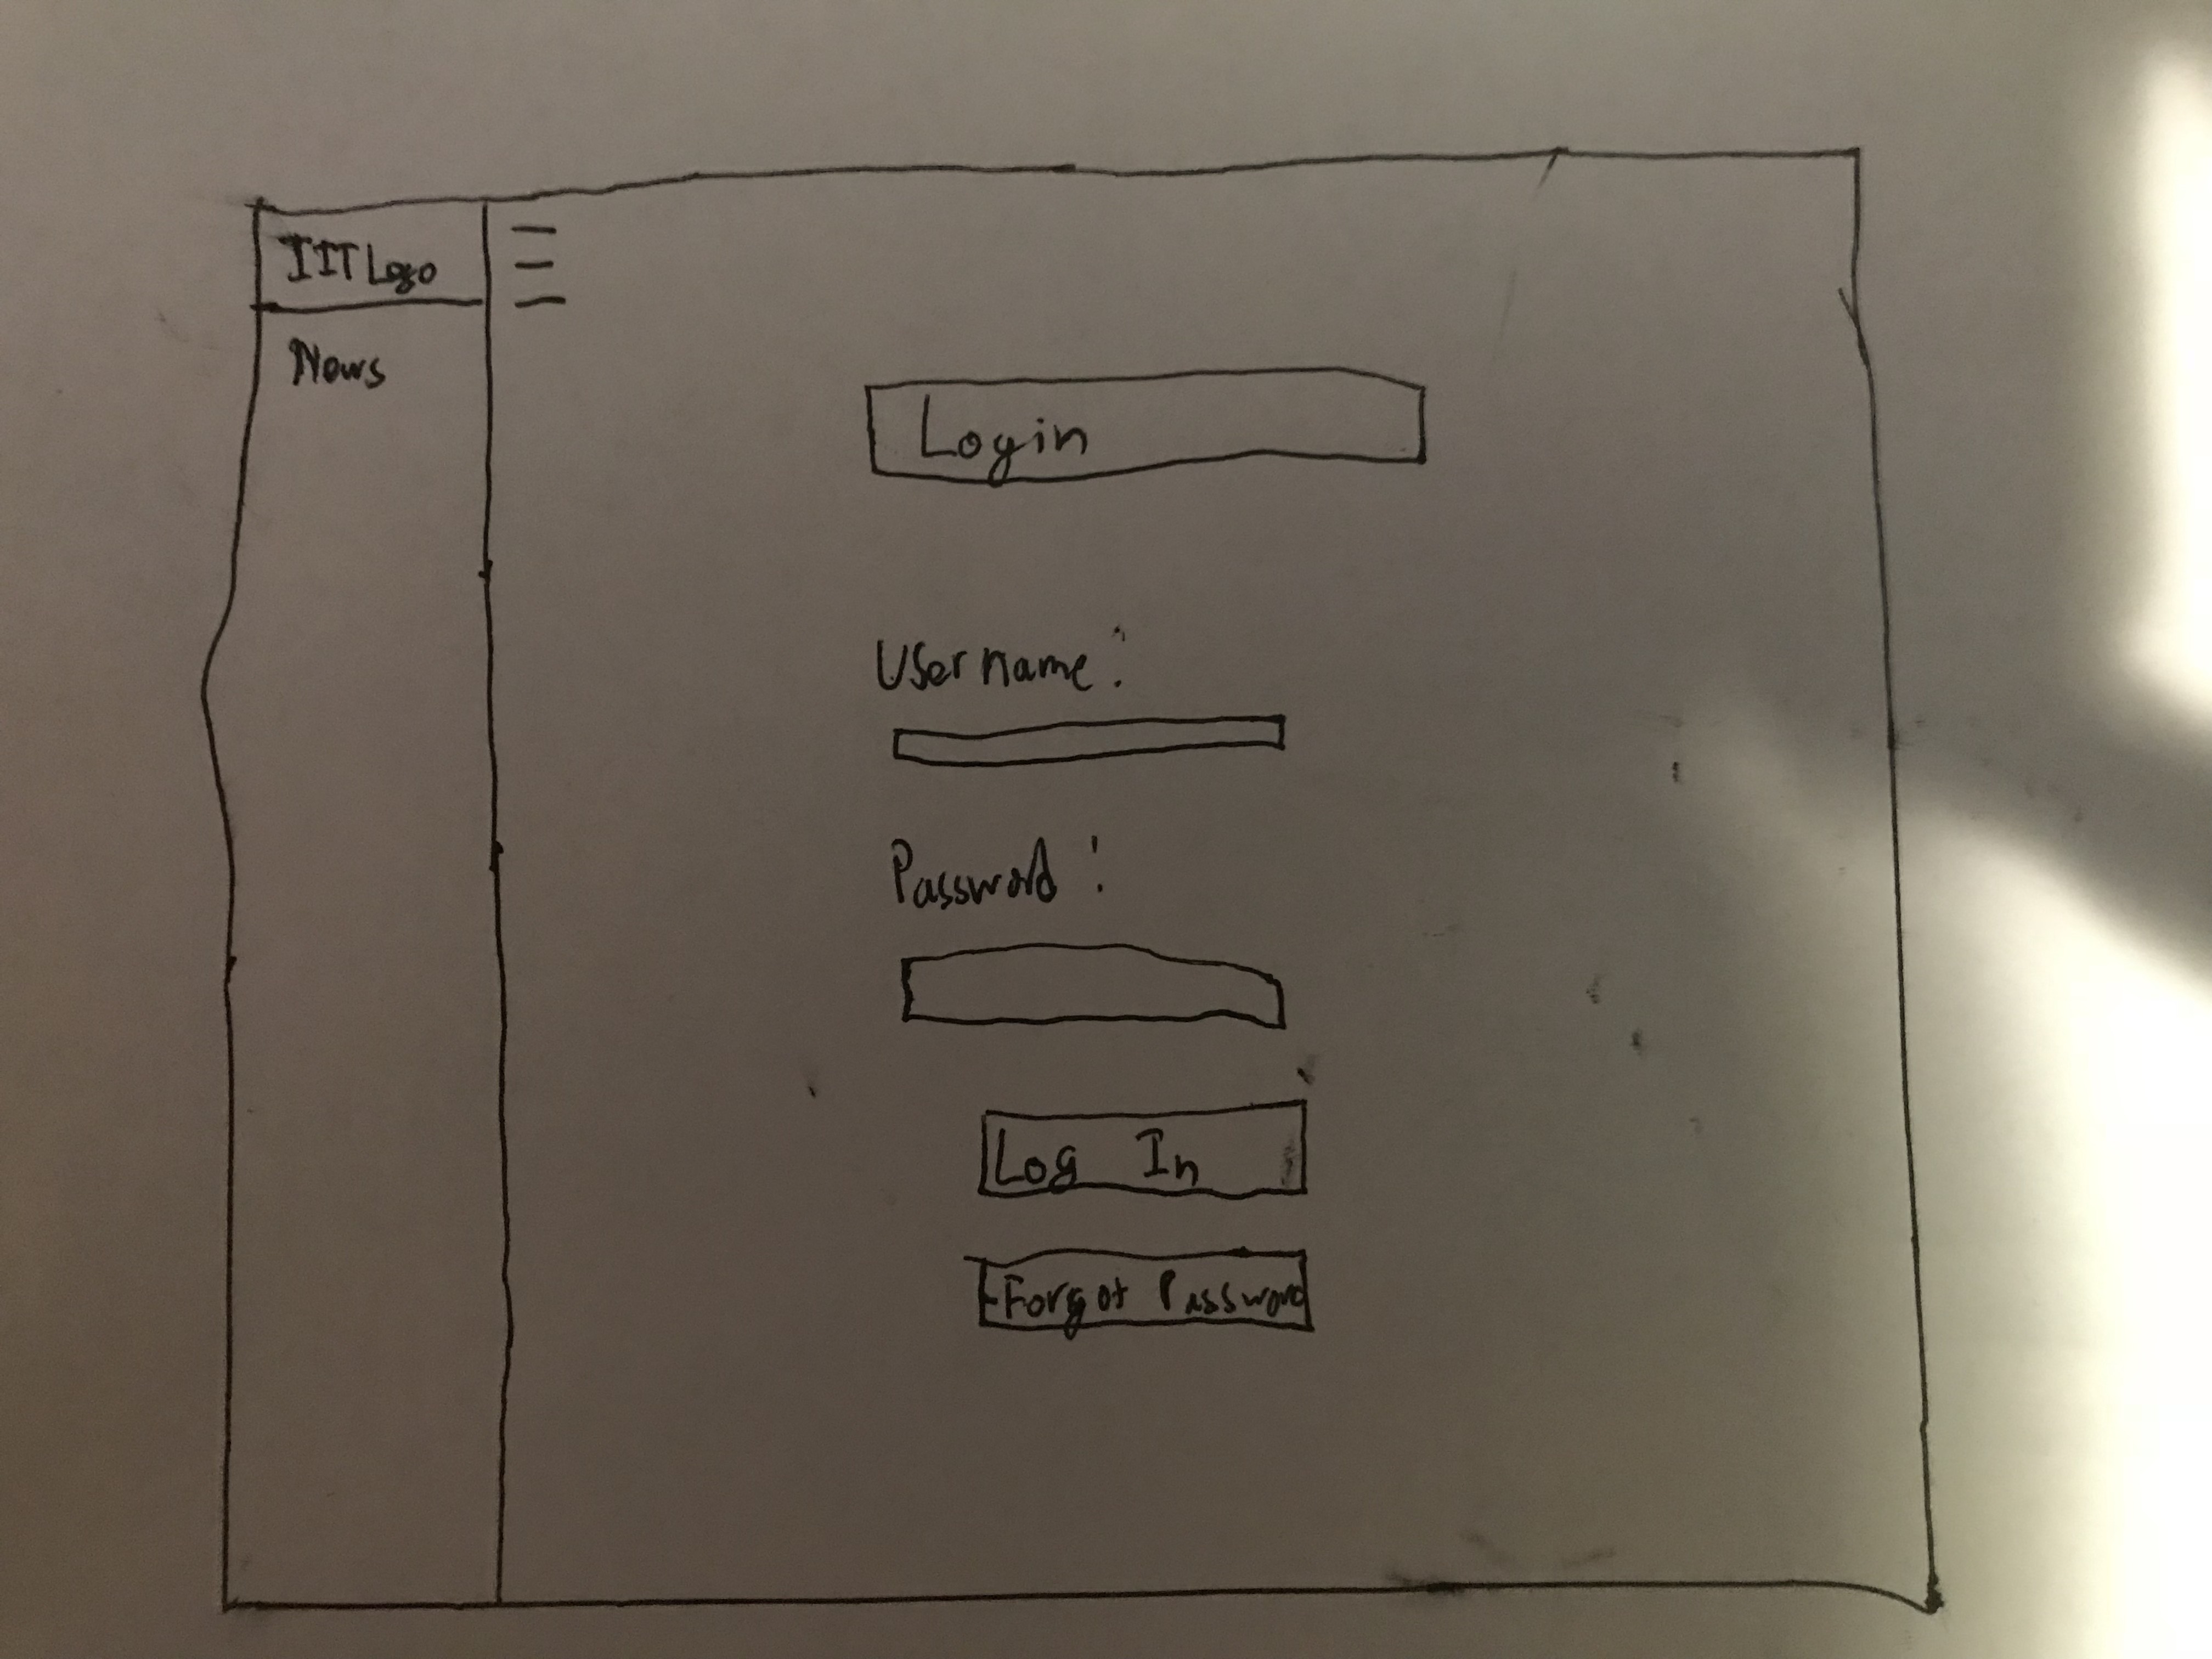 IIT Logo
News
Login
Username:
Password:
Log In
Forgot